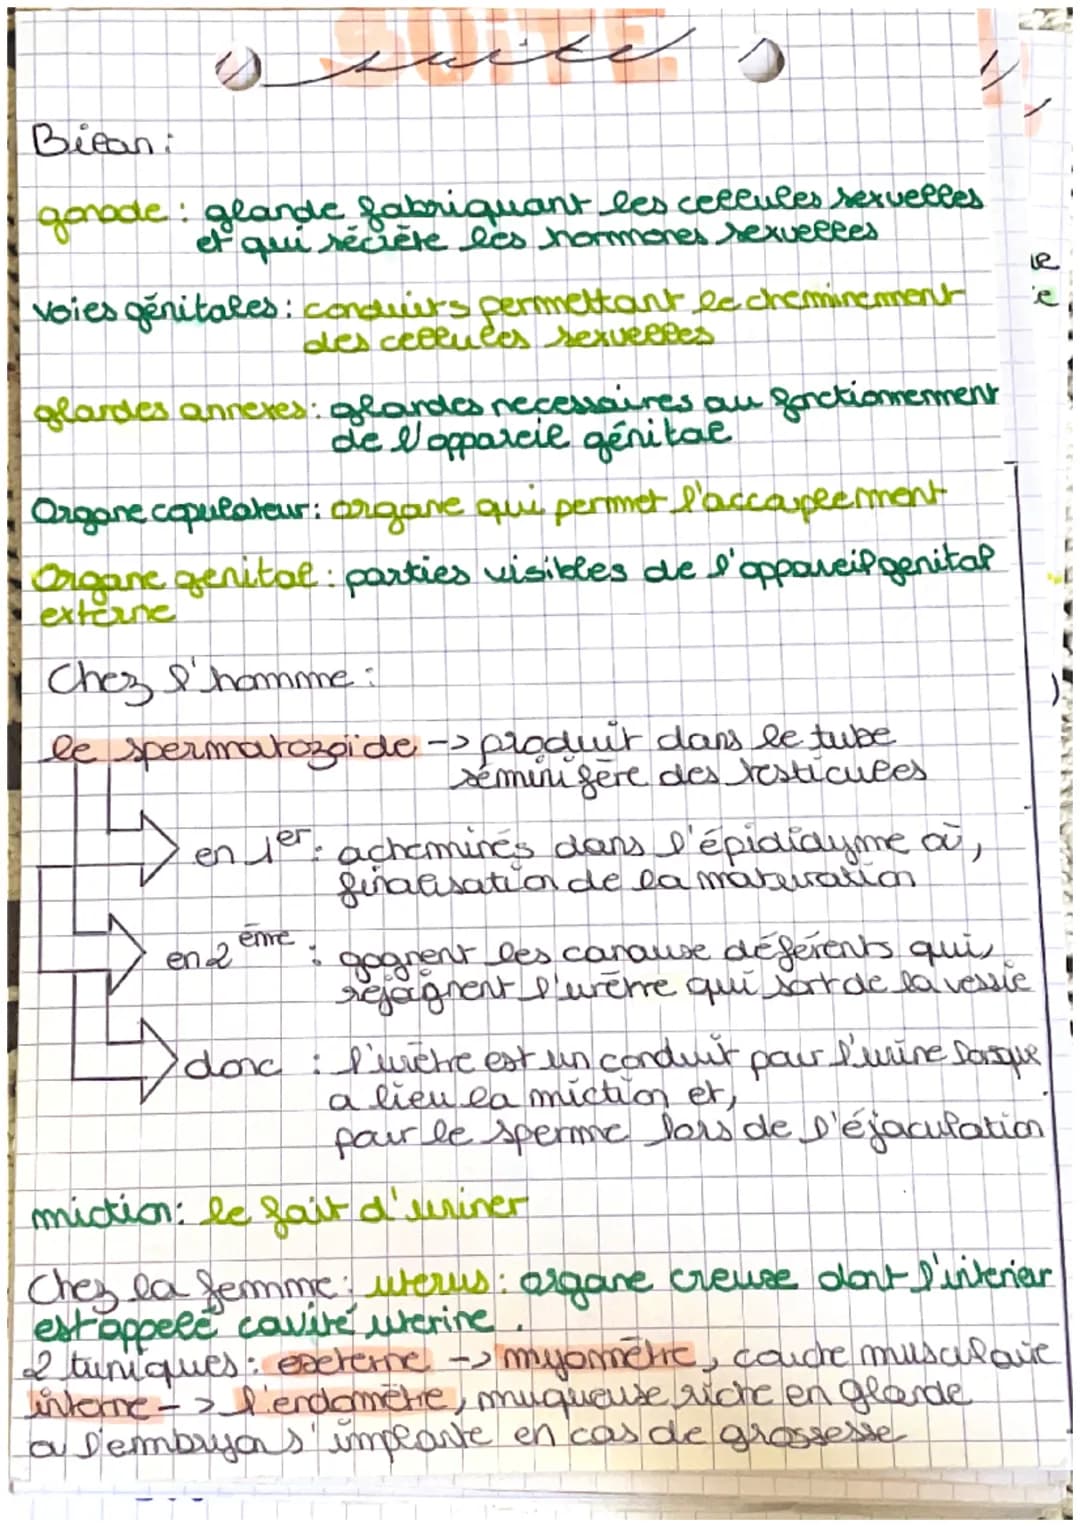 SUITE
suite
Bilan :
gonade : glande fabriquant les cellules sexuelles
et qui sécrète les hormones sexuelles
voies génitales : conduits permettant le cheminement
des cellules sexuelles
glandes annexes : glandes necessaires au fonctionnement
de l'appareil génital
Organe copulateur : organe qui permet l'accouplement
Organe genital : parties visibles de l'appareil genital
externe
Chez l'homme :
le spermatozoïde -> produit dans le tube
séminifère des testicules
en 1er : acheminés dans l'épididyme où,
finalisation de la maturation
en 2ème : gagnent les canause déférents qui,
rejoignent l'urètre qui sort de la vessie
donc : l'urètre est un conduit pour l'urine lorsque
a lieu la miction et,
pour le sperme lors de l'éjaculation
miction : le fait d'uriner
Chez la femme : uterus : organe creuse dont l'interieur
est appelé cavité uterine.
2 tuniques : externe -> myomètre, couche musculaire
interne -> l'endomètre, muqueuse riche en glande
a l'embryon s'implante en cas de grossesse